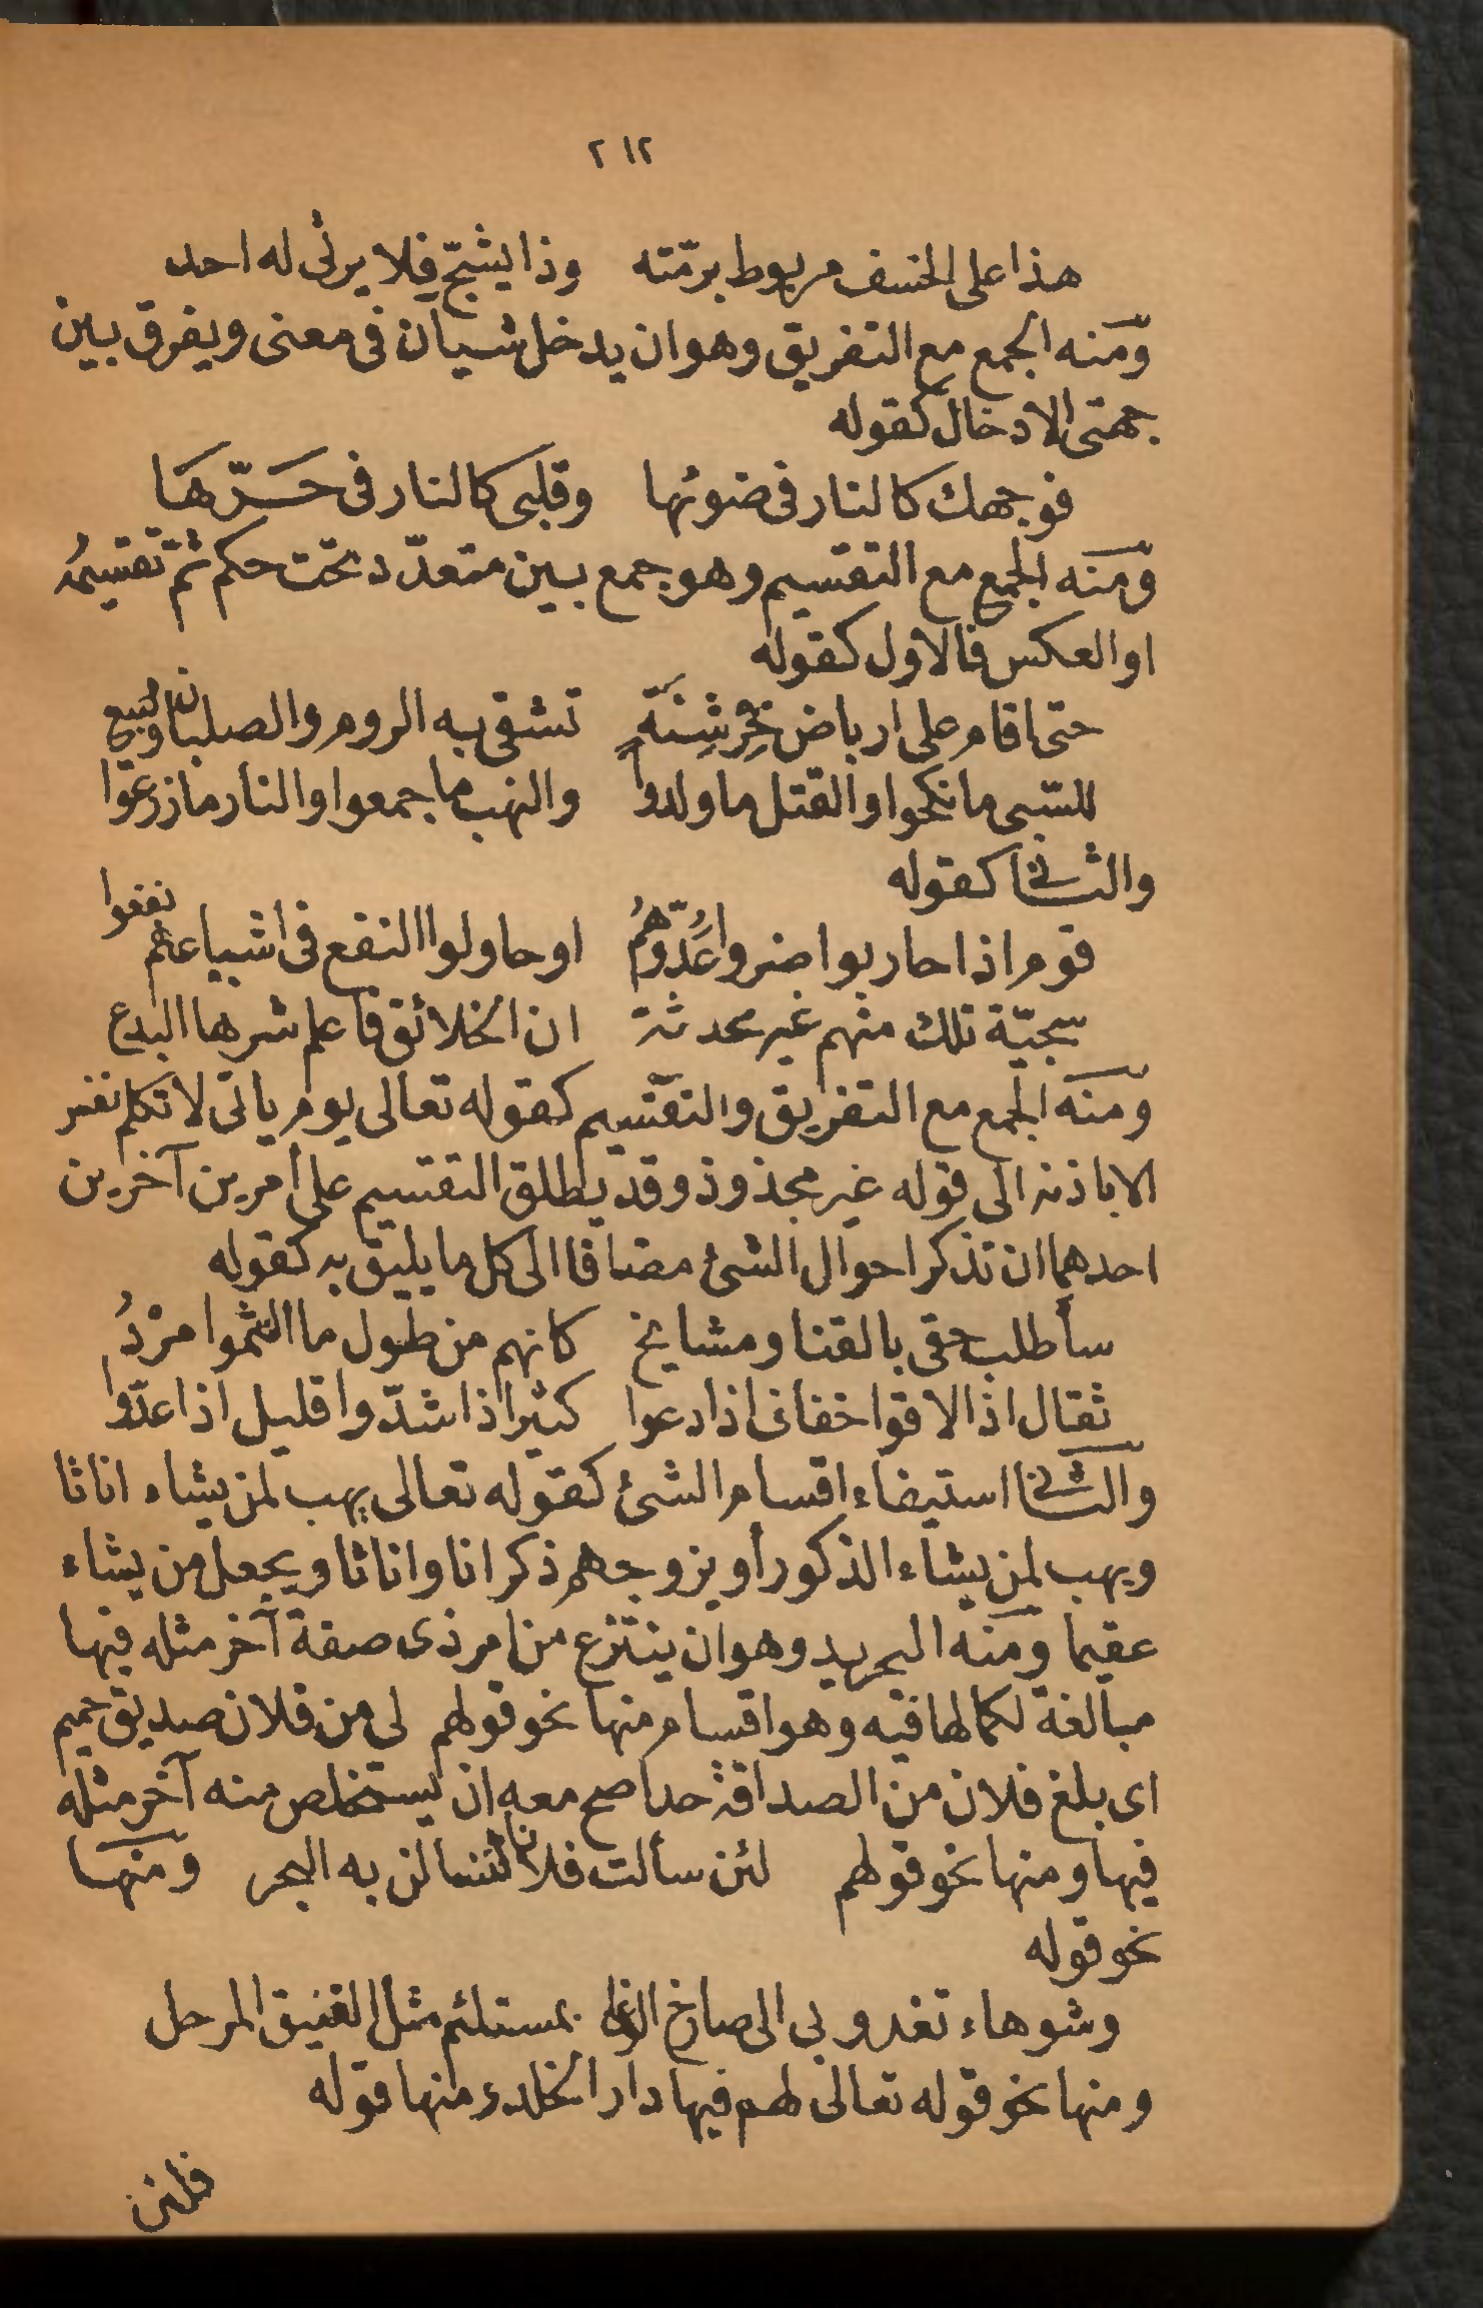 ٢١٢
هذا على الخسف مربوط برمّته وذا يشجّ فلا يرثى له احد
ومنه الجمع مع التفريق وهو ان يدخل شيان فى معنى ويفرق بين
جهتى الادخال كقوله
فوجهك كالنار فى ضوئها وقلبى كالنار فى حَرّهَا
ومنه الجمع مع التقسيم وهو جمع بين متعدّد تحت حكم ثمّ تقسيمُه
او العكس فالاول كقوله
حتى اقام على ارباض خَرشِنَةٍ تشقى به الروم والصلبان والبيع
للسّبى ما نكحوا والقتل ما ولدوا والنهب ما جمعوا والنار ما زرعوا
والثانى كقوله
قوم اذا حاربوا ضروا عَدُوّهمُ او حاولوا النفع فى اشياعهم نفعوا
سجيّة تلك منهم غير محدثة ان الخلائق فاعلم شرها البدع
ومنه الجمع مع التفريق والتقسيم كقوله تعالى يوم يأتى لا تكلم نفس
الا باذنه الى قوله غير مجذوذ وقد يطلق التقسيم على أمرين آخرين
احدهما ان تذكر احوال الشئ مضافا الى كل ما يليق به كقوله
سأطلب حقى بالقنا ومشايخ كانهم من طول ما التثموا مرْدُ
ثقال اذا لاقوا خفاف اذا دعوا كثير اذا شدّوا قليل اذا عدّوا
والثانى استيفاء اقسام الشئ كقوله تعالى يهب لمن يشاء اناثا
ويهب لمن يشاء الذكور أو يزوجهم ذكرانا واناثا ويجعل من يشاء
عقيما ومنه التجريد وهو ان ينتزع من امر ذى صفة آخر مثله فيها
مبالغة لكمالها فيه وهو اقسام منها نحو قولهم لى من فلان صديق حميم
اى بلغ فلان من الصداقة حدا صح معه ان يستخلص منه آخر مثله
فيها ومنها نحو قولهم لئن سألت فلانا لتسالن به البحر ومنها
نحو قوله
وشوهاء تغدو بى الى صارخ الوغا بمستلئم مثل الفنيق المرحل
ومنها نحو قوله تعالى لهم فيها دار الخلد ومنها قوله
فلئن